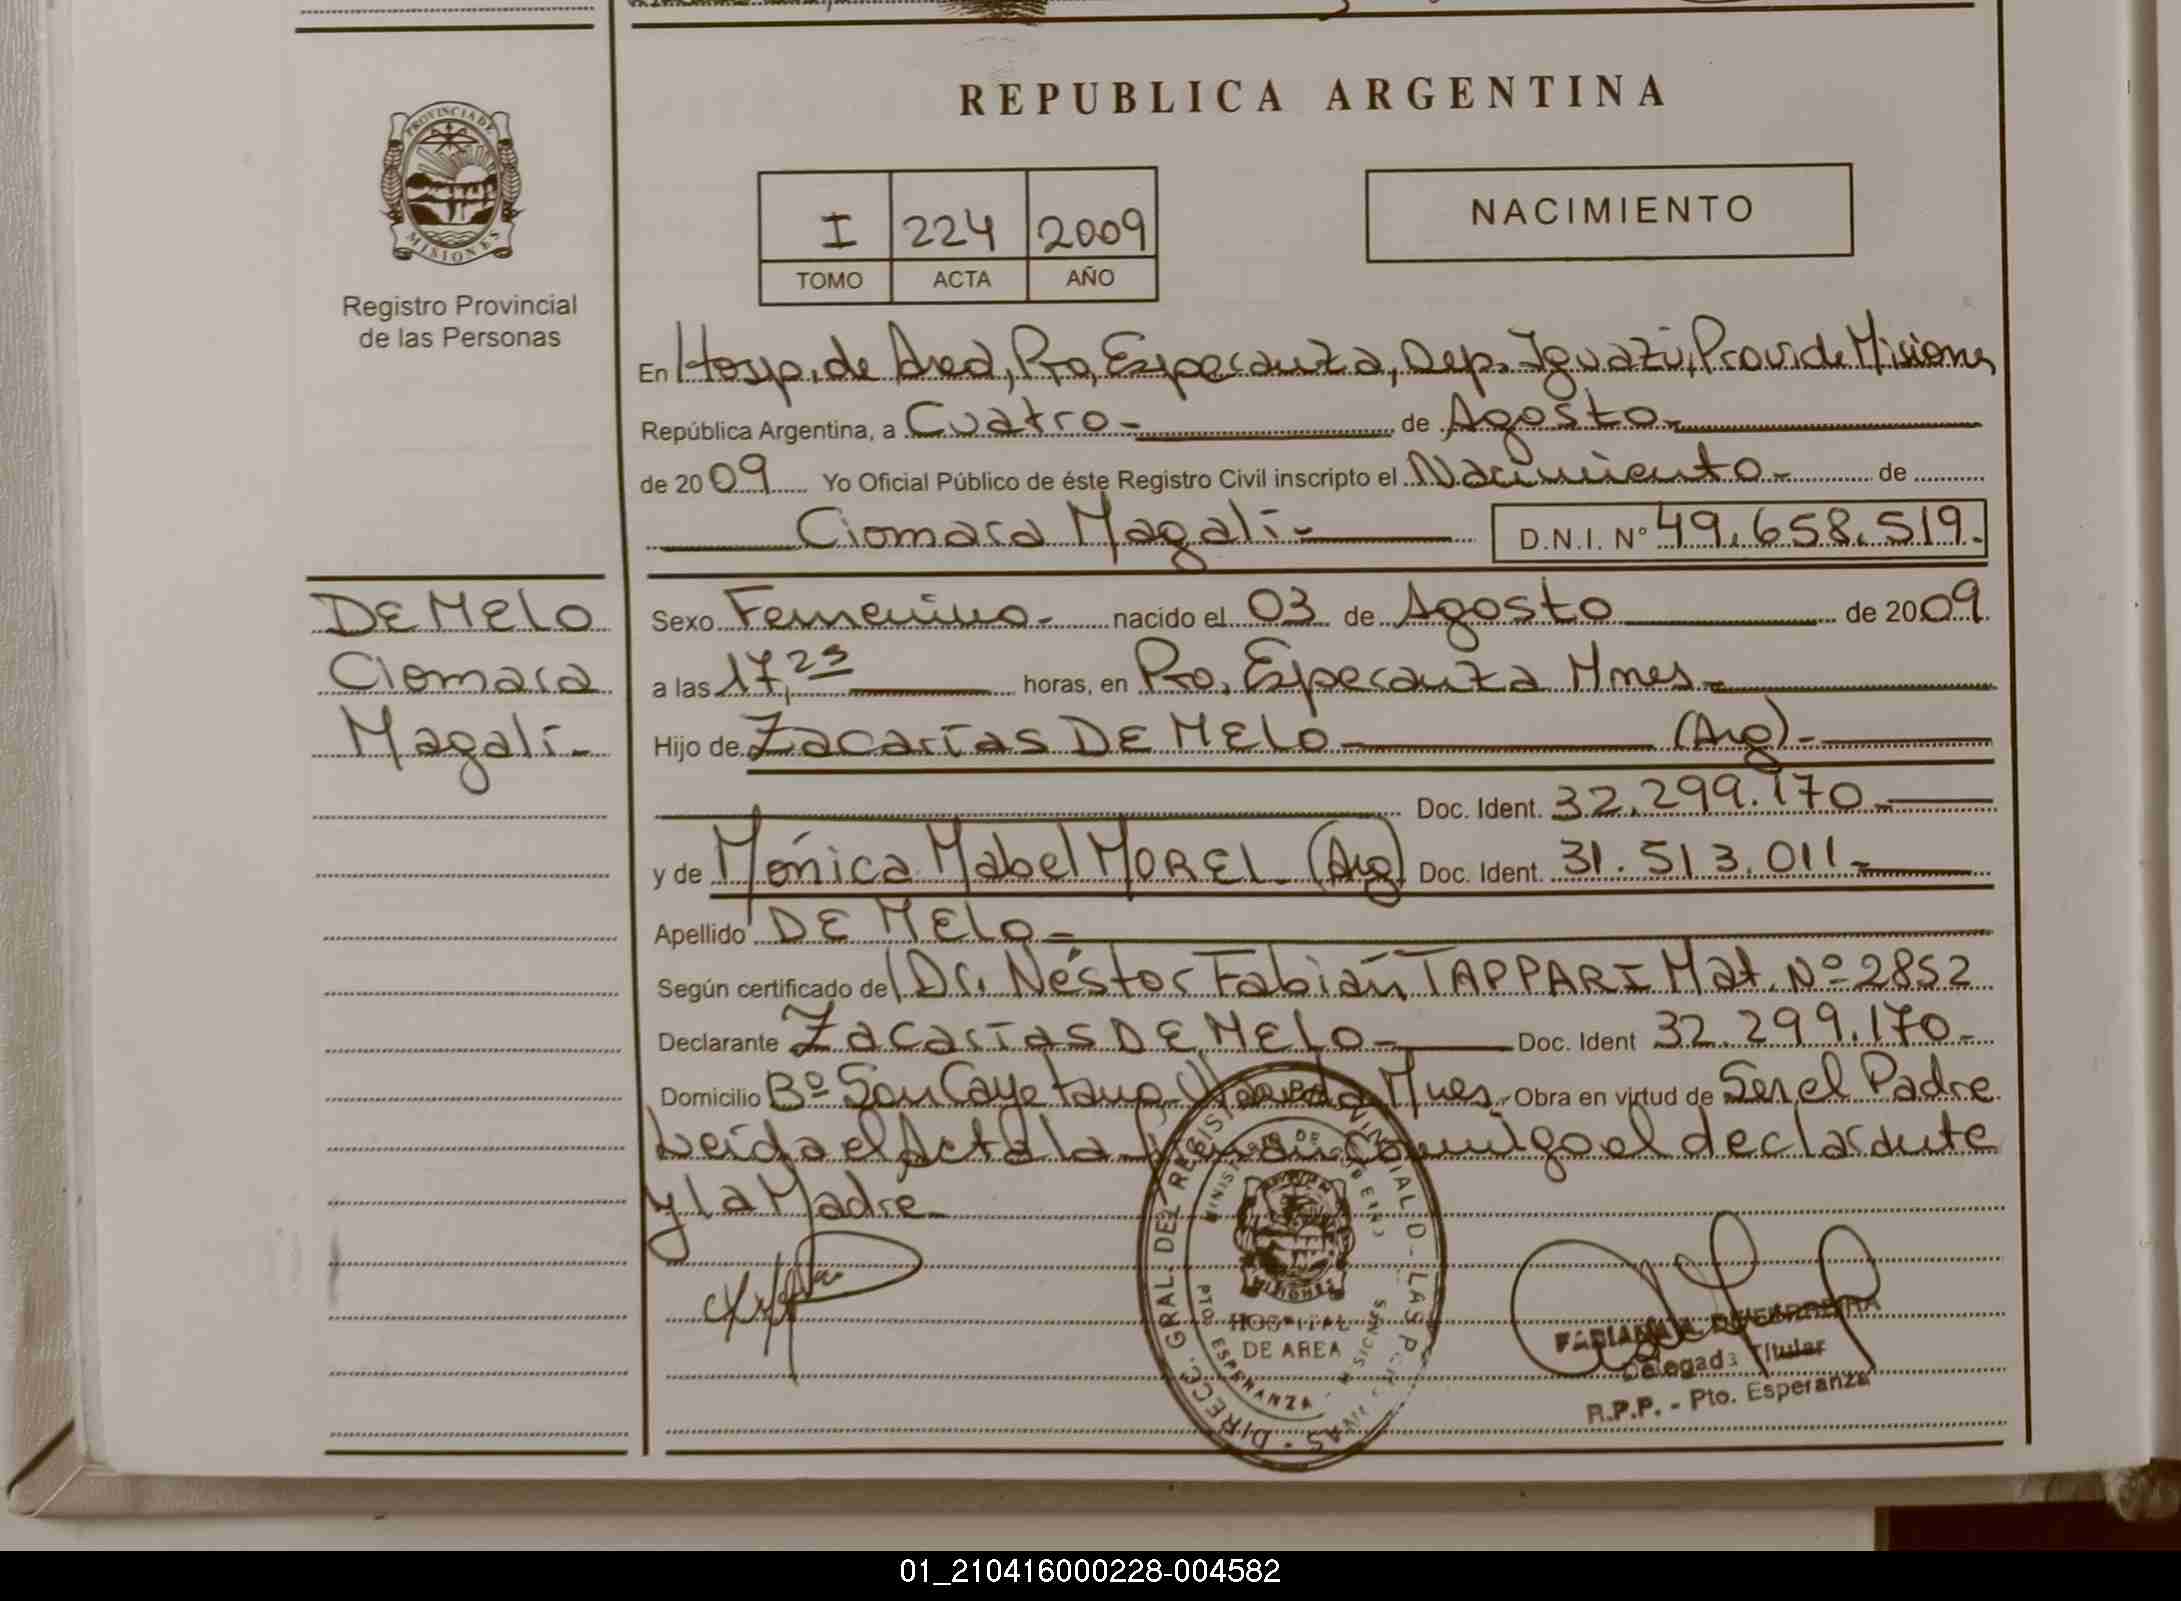 REPUBLICA ARGENTINA
PROVINCIA DE
MISIONES
Registro Provincial
de las Personas
I 224 2009
TOMO ACTA AÑO
NACIMIENTO
En Hosp. de Area, Pto, Esperanza, Dep. Iguazú, Prov. de Misiones
República Argentina, a Cuatro- de Agosto-
de 2009 Yo Oficial Público de éste Registro Civil inscripto el Nacimiento- de
Ciomara Magalí- D.N.I. Nº 49.658.519.
DE MELO
Ciomara
Magalí-
Sexo Femenino- nacido el 03 de Agosto de 2009
a las 17, horas, en Pto, Esperanza Mnes-
Hijo de Zacarías DE MELO- (Arg)-
Doc. Ident. 32.299.170-
y de Mónica Mabel MOREL- (Arg) Doc. Ident. 31.513.011-
Apellido DE MELO-
Según certificado de Dr. Néstor Fabián TAPPARI Mat. Nº 2852
Declarante Zacarías DE MELO- Doc. Ident 32.299.170-
Domicilio Bº San Cayetano Mnes- Obra en virtud de Ser el Padre
Leida el Acta la firman Conmigo el declarante
y la Madre-
DIRECC. GRAL. DEL REGIST PROVINCIAL D- LAS
MINISTERIO DE GOBIERNO
MISIONES
HOSPITAL
DE AREA
PTO. ESPERANZA - MISIONES
Delegada Titular
R.P.P. - Pto. Esperanza
01_210416000228-004582